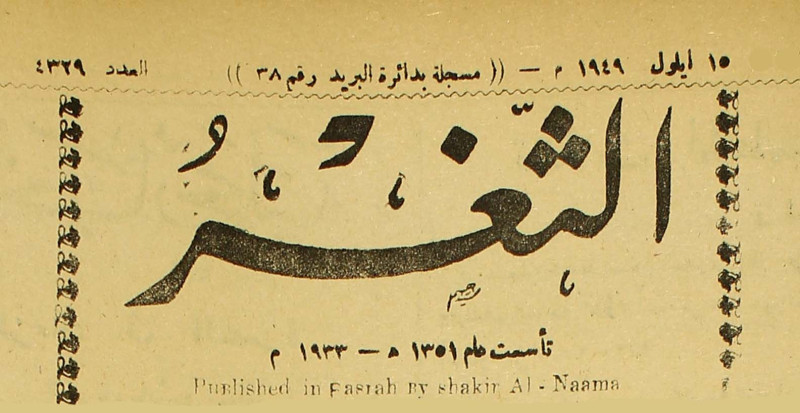 ١٥ ايلول ١٩٤٩ م — (( مسجلة بدائرة البريد رقم ٣٨ )) العدد ٤٣٢٩
الثّغْرُ
تأسست عام ١٣٥١ ه — ١٩٣٣ م
Published in Basrah By shakir Al - Naama